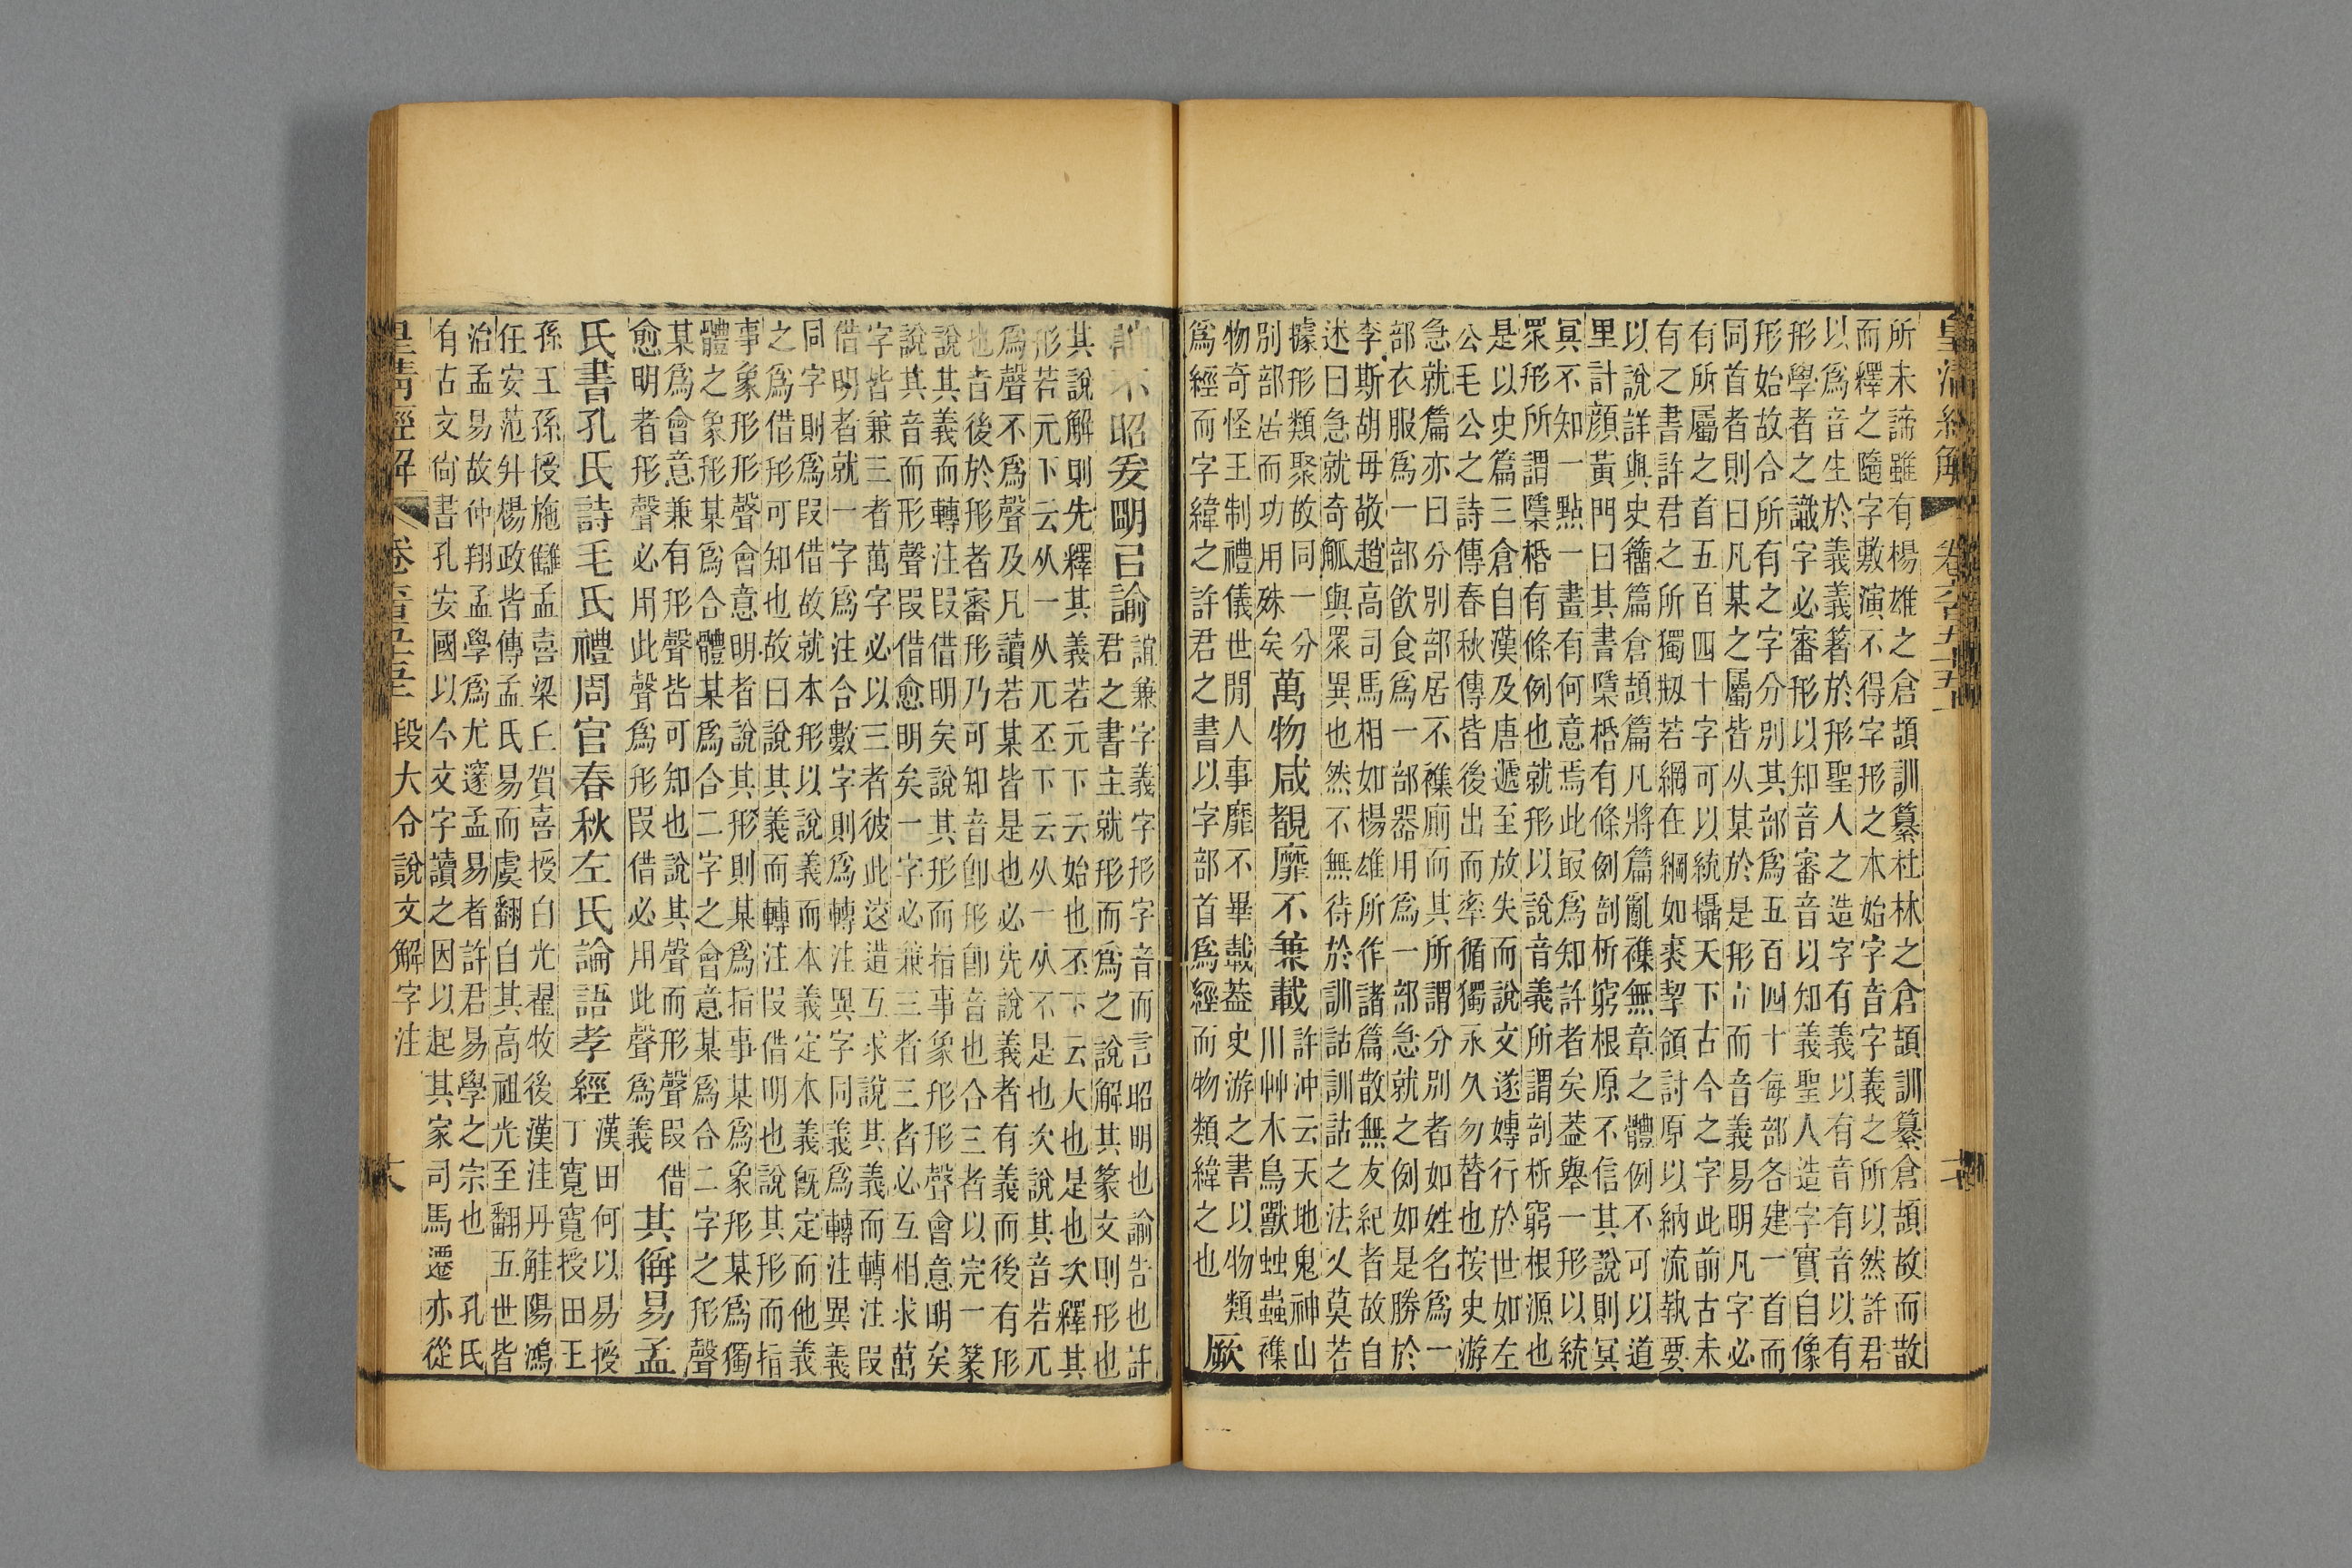 皇清經解 卷六百五十五
所未諦雖有楊雄之倉頡訓纂杜林之倉頡訓纂倉頡故而散
而釋之隨字敷演不得字形之本始字音字義之所以然許君
以爲音生於義義著於形聖人之造字有義以有音有音以有
形學者之識字必審形以知音審音以知義聖人造字實自像
形始故合所有之字分別其部爲五百四十每部各建一首而
同首者則曰凡某之屬皆从某於是形立而音義易明凡字必
有所屬之首五百四十字可以統攝天下古今之字此前古未
有之書許君之所獨剏若網在綱如裘挈領討原以納流執要
以說詳與史籒篇倉頡篇凡將篇亂襍無章之體例不可以道
里計顏黃門曰其書檃栝有條例剖析窮根原不信其說則冥
冥不知一點一畫有何意焉此㝡爲知許者矣葢舉一形以統
眾形所謂檃栝有條例也就形以說音義所謂剖析窮根源也
是以史篇三倉自漢及唐遞至放失而說文遂嫥行於世如左
公毛公之詩傳春秋傳皆後出而率循獨永久勿替也按史游
急就篇亦曰分別部居不襍廁而其所謂分別者如姓名爲一
部衣服爲一部飮食爲一部器用爲一部急就之例如是勝於
李斯胡毋敬趙高司馬相如楊雄所作諸篇散無友紀者故自
述曰急就奇觚與眾異也然不無待於訓詁訓詁之法久莫若
據形類聚故同一分
別部居而功用殊矣
萬物咸覩靡不兼載
許沖云天地鬼神山
川艸木鳥獸䖵蟲襍
物奇怪王制禮儀世閒人事靡不畢載葢史游之書以物類
爲經而字緯之許君之書以字部首爲經而物類緯之也
厥
誼不昭爰明已諭
誼兼字義字形字音而言昭明也諭告也許
君之書主就形而爲之說解其篆文則形也
其說解則先釋其義若元下云始也丕下云大也是也次釋其
形若元下云从一从兀丕下云从一从不是也次說其音若兀
爲聲不爲聲及凡讀若某皆是也必先說義者有義而後有形
也音後於形者審形乃可知音卽形卽音也合三者以完一篆
說其義而轉注叚借明矣說其形而指事象形形聲會意明矣
說其音而形聲叚借愈明矣一字必兼三者三者必互相求萬
字皆兼三者萬字必以三者彼此䢒造互求說其義而轉注叚
借明者就一字爲注合數字則爲轉注異字同義爲轉注異義
同字則爲叚借故就本形以說義而本義定本義旣定而他義
之爲借形可知也故曰說其義而轉注叚借明也說其形而指
事象形形聲會意明者說其形則某爲指事某爲象形某爲獨
體之象形某爲合體某爲合二字之會意某爲合二字之形聲
某爲會意兼有形聲皆可知也說其聲而形聲叚借
愈明者形聲必用此聲爲形叚借必用此聲爲義
其偁易孟
氏書孔氏詩毛氏禮周官春秋左氏論語孝經
漢田何以易授
丁寬寬授田王
孫王孫授施讎孟喜梁丘賀喜授白光翟牧後漢洼丹觟陽鴻
任安范升楊政皆傳孟氏易而虞翻自其高祖光至翻五世皆
治孟易故仲翔孟學爲尤邃孟易者許君易學之宗也 孔氏
有古文尙書孔安國以今文字讀之因以起其家司馬遷亦從
皇清經解 卷六百五十五 段大令說文解字注